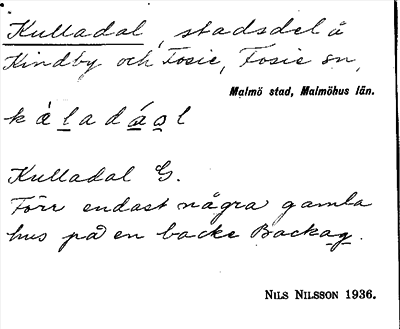 Kulladal, stadsdel å
Kindby och Fosie, Fosie sn,
Malmö stad, Malmöhus län.
Kulladal G.
Förr endast några gamla
hus på en backe Backag.
NILS NILSSON 1936.